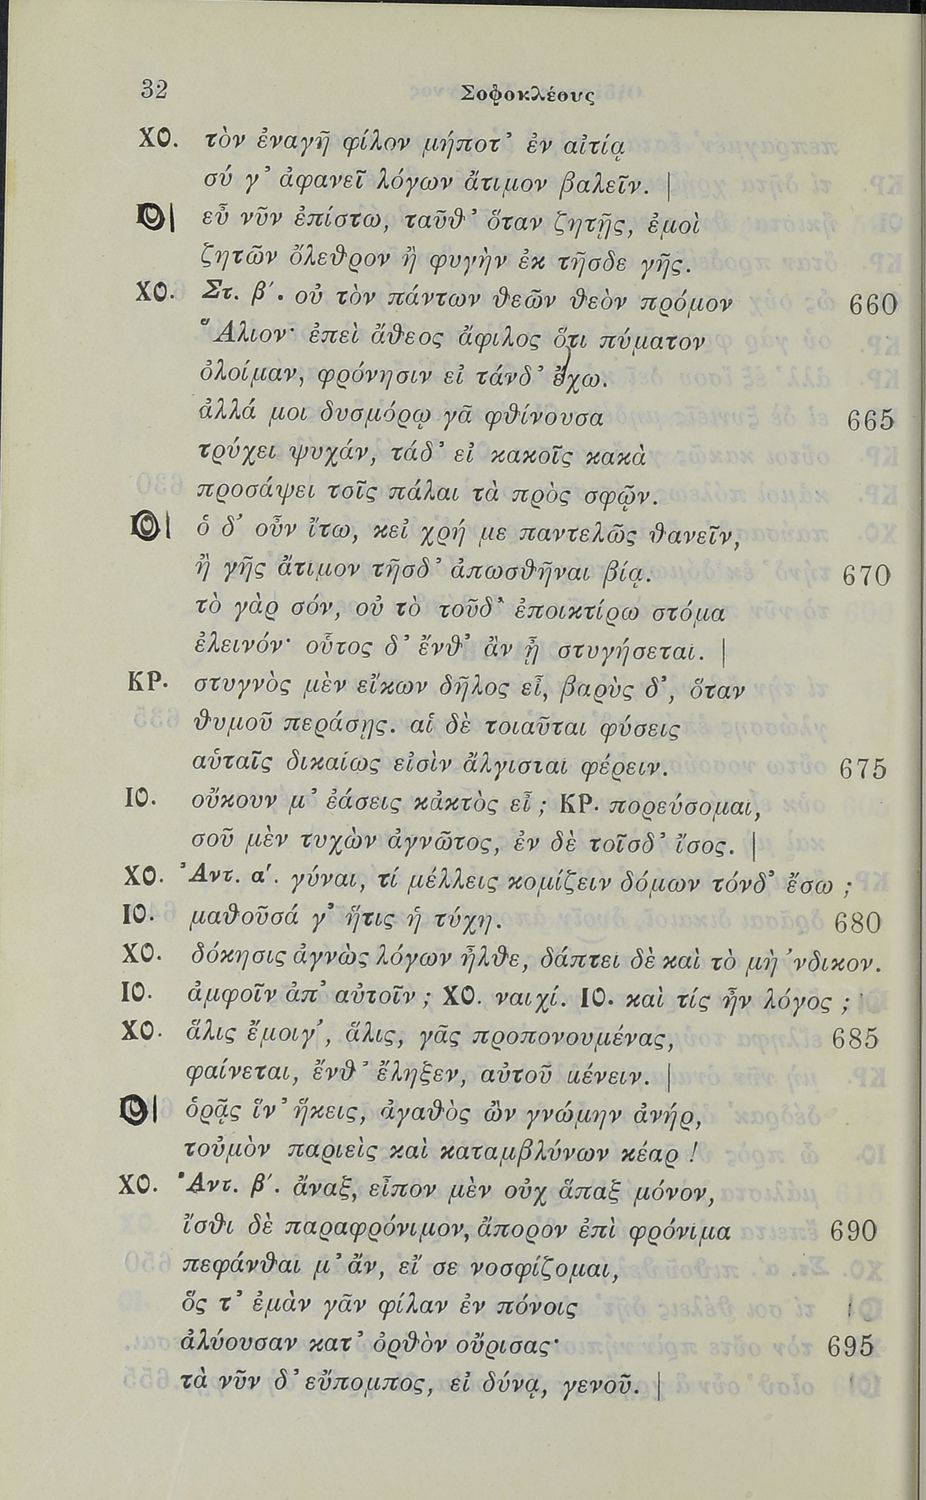 32 Σοφοκλέους
ΧΟ. τὸν ἐναγῆ φίλον μήποτ᾽ ἐν αἰτίᾳ
σύ γ᾽ ἀφανεῖ λόγων ἄτιμον βαλεῖν. |
εὖ νῦν ἐπίστω, ταῦθ᾽ ὅταν ζητῇς, ἐμοὶ
ζητῶν ὄλεθρον ἢ φυγὴν ἐκ τῆσδε γῆς.
ΧΟ. Στ. β΄. οὐ τὸν πάντων θεῶν θεὸν πρόμον 660
Ἅλιον· ἐπεὶ ἄθεος ἄφιλος ὅτι πύματον
ὀλοίμαν, φρόνησιν εἰ τάνδ᾽ ἔχω.
ἀλλά μοι δυσμόρῳ γᾶ φθίνουσα 665
τρύχει ψυχάν, τάδ᾽ εἰ κακοῖς κακὰ
προσάψει τοῖς πάλαι τὰ πρὸς σφῷν.
ὁ δ᾽ οὖν ἴτω, κεἰ χρή με παντελῶς θανεῖν,
ἢ γῆς ἄτιμον τῆσδ᾽ ἀπωσθῆναι βίᾳ. 670
τὸ γὰρ σόν, οὐ τὸ τοῦδ᾽ ἐποικτίρω στόμα
ἐλεινόν· οὗτος δ᾽ ἔνθ᾽ ἂν ᾖ στυγήσεται. |
ΚΡ. στυγνὸς μὲν εἴκων δῆλος εἶ, βαρὺς δ᾽, ὅταν
θυμοῦ περάσῃς. αἱ δὲ τοιαῦται φύσεις
αὑταῖς δικαίως εἰσὶν ἄλγισται φέρειν. 675
ΙΟ. οὔκουν μ᾽ ἐάσεις κἀκτὸς εἶ; ΚΡ. πορεύσομαι,
σοῦ μὲν τυχὼν ἀγνῶτος, ἐν δὲ τοῖσδ᾽ ἴσος. |
ΧΟ. Ἀντ. α΄. γύναι, τί μέλλεις κομίζειν δόμων τόνδ᾽ ἔσω;
ΙΟ. μαθοῦσά γ᾽ ἥτις ἡ τύχη. 680
ΧΟ. δόκησις ἀγνὼς λόγων ἦλθε, δάπτει δὲ καὶ τὸ μὴ ᾽νδικον.
ΙΟ. ἀμφοῖν ἀπ᾽ αὐτοῖν; ΧΟ. ναιχί. ΙΟ. καὶ τίς ἦν λόγος;
ΧΟ. ἅλις ἔμοιγ᾽, ἅλις, γᾶς προπονουμένας, 685
φαίνεται, ἔνθ᾽ ἔληξεν, αὐτοῦ μένειν. |
ὁρᾷς ἵν᾽ ἥκεις, ἀγαθὸς ὢν γνώμην ἀνήρ,
τοὐμὸν παριεὶς καὶ καταμβλύνων κέαρ !
ΧΟ. Ἀντ. β΄. ἄναξ, εἶπον μὲν οὐχ ἅπαξ μόνον,
ἴσθι δὲ παραφρόνιμον, ἄπορον ἐπὶ φρόνιμα 690
πεφάνθαι μ᾽ ἄν, εἴ σε νοσφίζομαι,
ὅς τ᾽ ἐμὰν γᾶν φίλαν ἐν πόνοις
ἀλύουσαν κατ᾽ ὀρθὸν οὔρισας· 695
τὰ νῦν δ᾽ εὔπομπος, εἰ δύνᾳ, γενοῦ. |